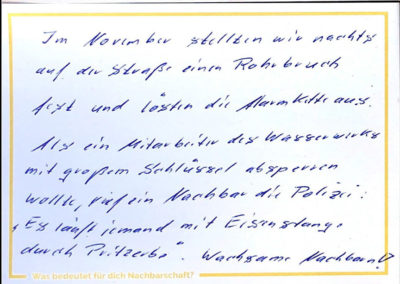 Im November stellten wir nachts
auf der Straße einen Rohrbruch
fest und lösten die Alarmkette aus.
Als ein Mitarbeiter des Wasserwerks
mit großem Schlüssel absperren
wollte, rief ein Nachbar die Polizei:
„Es läuft jemand mit Eisenstange
durch Pritzerbe“. Wachsame Nachbarn!?
Was bedeutet für dich Nachbarschaft?